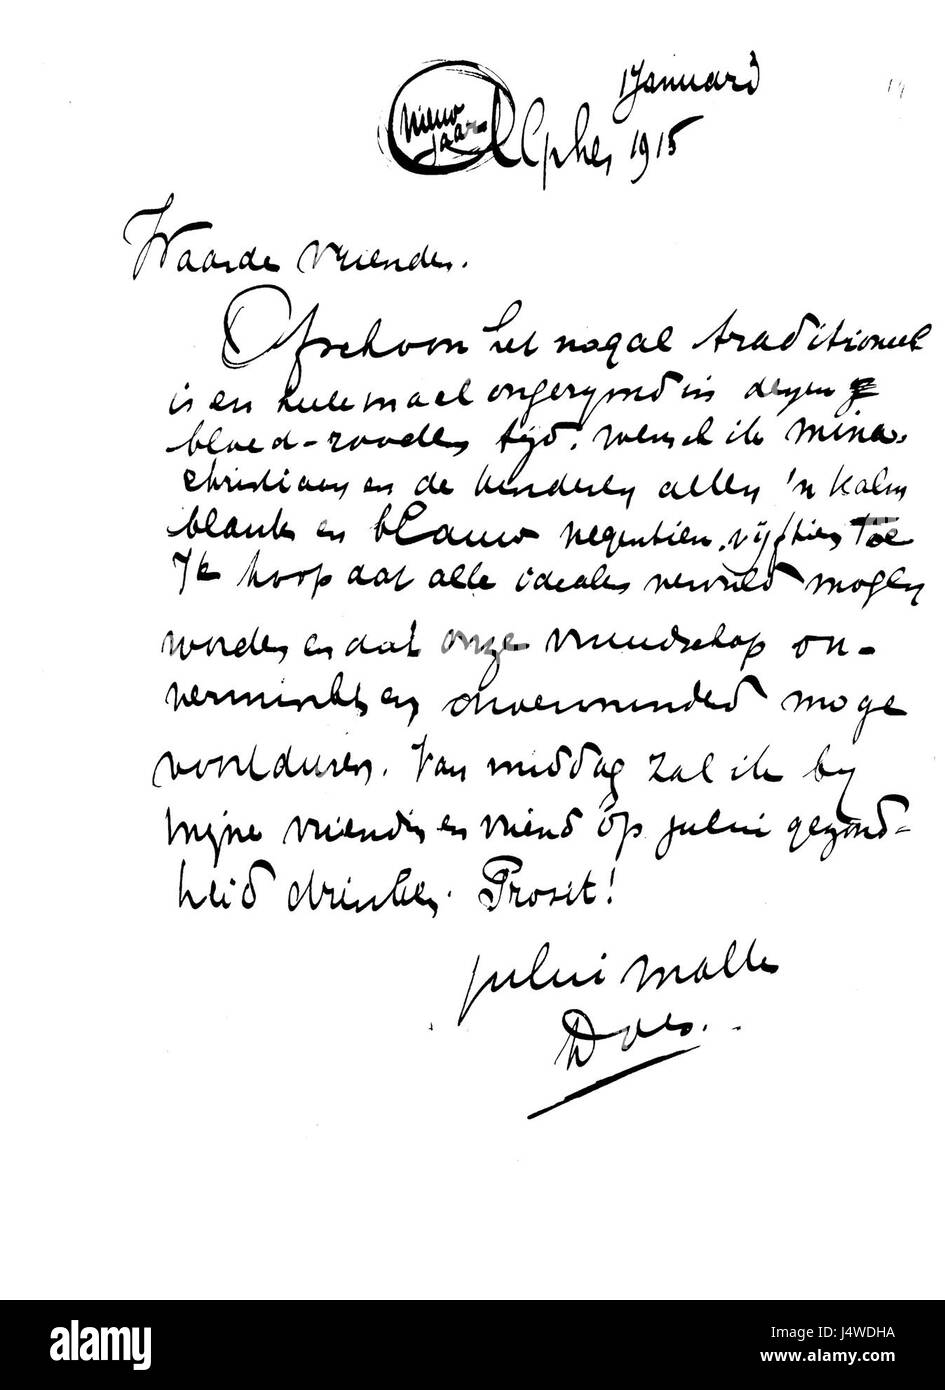 1 Januari
Nieuw
jaar
Alphen 1915
Waarde Vrienden.
Ofschoon het nogal traditioneel
is en heelemaal ongerymd in dezen
bloed-rooden tijd, wensch ik Mina,
Christiaan en de kinderen allen 'n kalm
blank en blauw negentien vijftien toe
Ik hoop dat alle idealen vervuld mogen
worden en dat onze vriendschap on-
vermindert en onverminded moge
voortduren. Van middag zal ik by
mijne vriendin en vriend op jului gezond-
heid drinken. Prosit!
jului malle
Does.
alamy
Image ID: J4WDHA
www.alamy.com